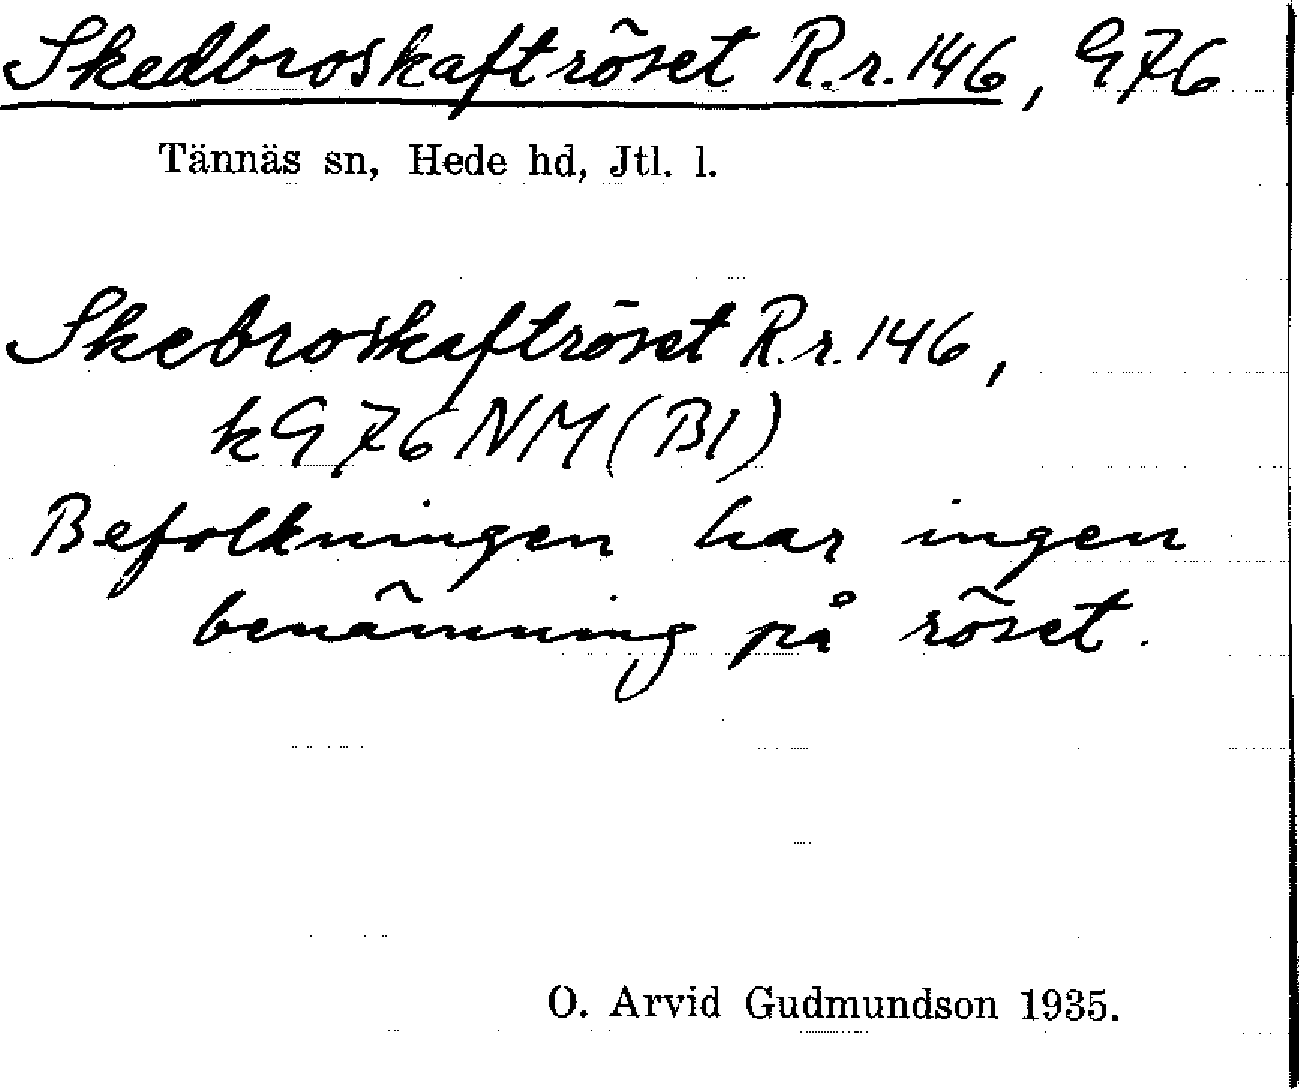 Skedbroskaftröset R.r.146, G76
Tännäs sn, Hede hd, Jtl. l.
Skebroskaftröset R.r.146,
kG76NM(Bl)
Befolkningen har ingen
benämning på röset.
O. Arvid Gudmundson 1935.